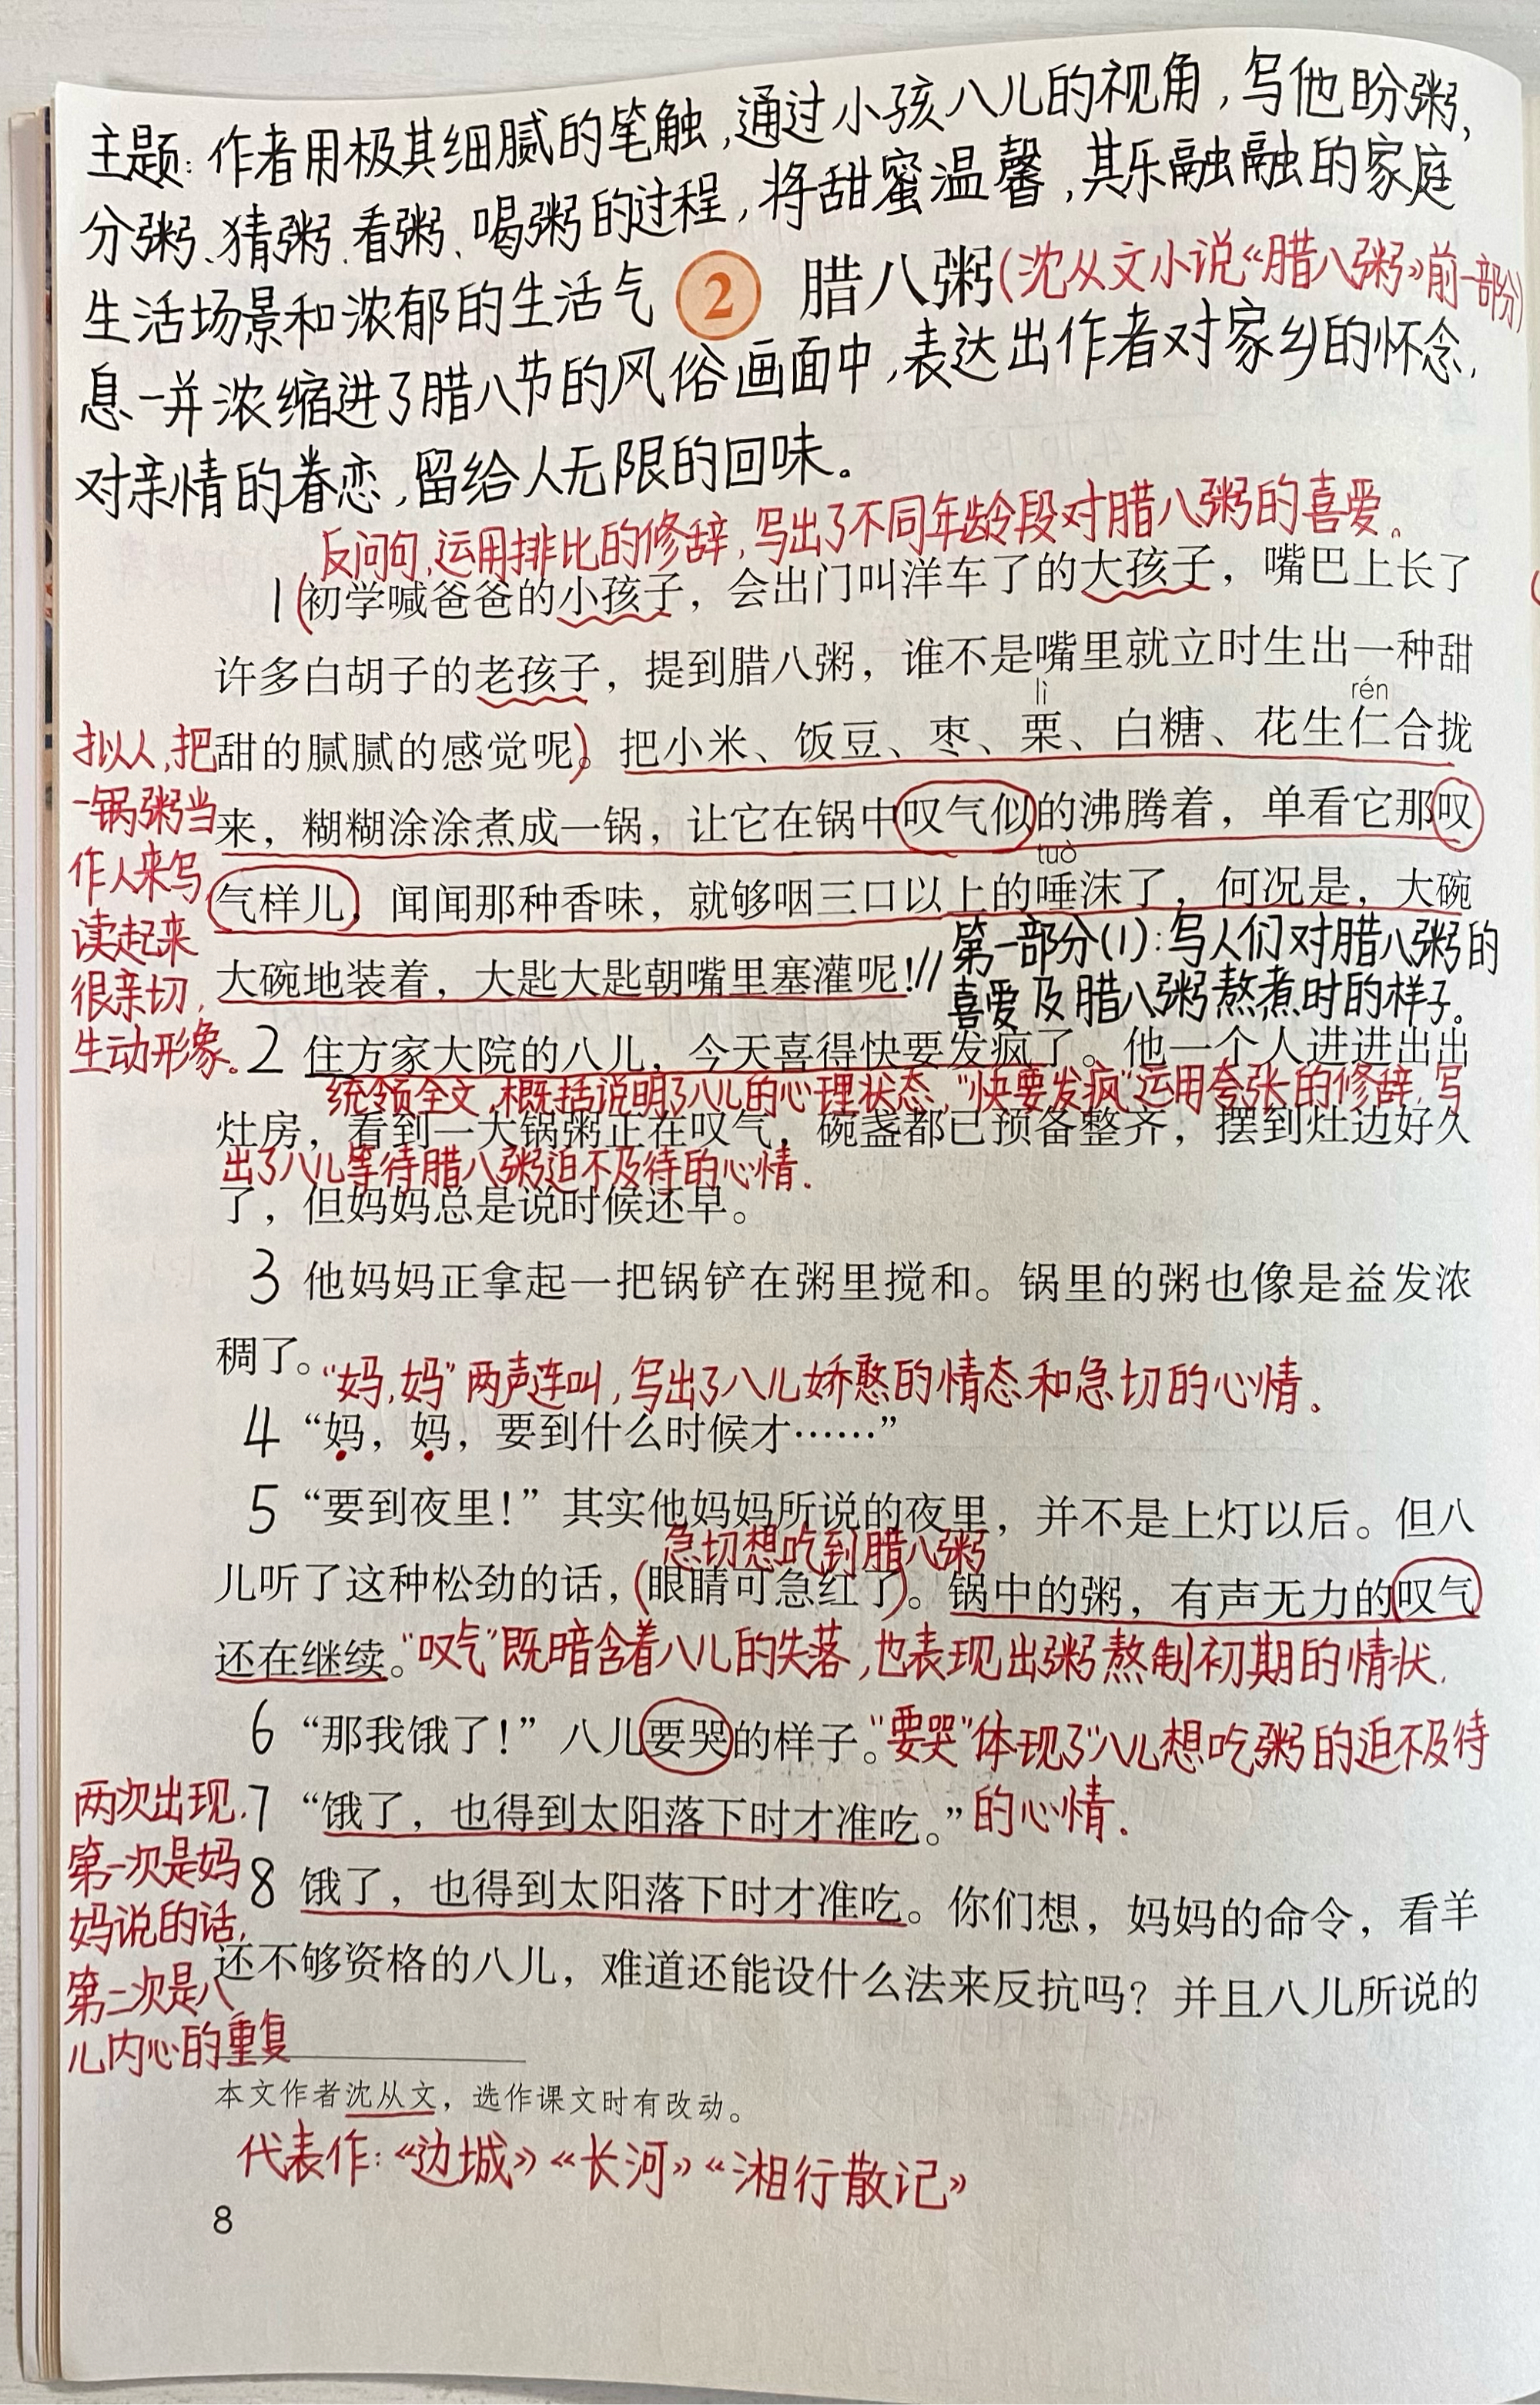 主题：作者用极其细腻的笔触，通过小孩八儿的视角，写他盼粥，
分粥、猜粥、看粥、喝粥的过程，将甜蜜温馨，其乐融融的家庭
生活场景和浓郁的生活气
② 腊八粥(沈从文小说《腊八粥》前一部分)
息一并浓缩进了腊八节的风俗画面中，表达出作者对家乡的怀念，
对亲情的眷恋，留给人无限的回味。
反问句，运用排比的修辞，写出了不同年龄段对腊八粥的喜爱。
1(初学喊爸爸的小孩子，会出门叫洋车了的大孩子，嘴巴上长了
许多白胡子的老孩子，提到腊八粥，谁不是嘴里就立时生出一种甜
lì rén
甜的腻腻的感觉呢)。把小米、饭豆、枣、栗、白糖、花生仁合拢
来，糊糊涂涂煮成一锅，让它在锅中叹气似的沸腾着，单看它那叹
tuò
气样儿，闻闻那种香味，就够咽三口以上的唾沫了，何况是，大碗
大碗地装着，大匙大匙朝嘴里塞灌呢！//
拟人，把
一锅粥当
作人来写
读起来
很亲切，
生动形象。
第一部分(1)：写人们对腊八粥的
喜爱及腊八粥熬煮时的样子。
2 住方家大院的八儿，今天喜得快要发疯了。他一个人进进出出
统领全文，概括说明了八儿的心理状态，“快要发疯”运用夸张的修辞，写
灶房，看到一大锅粥正在叹气，碗盏都已预备整齐，摆到灶边好久
出了八儿等待腊八粥迫不及待的心情．
了，但妈妈总是说时候还早。
3 他妈妈正拿起一把锅铲在粥里搅和。锅里的粥也像是益发浓
稠了。
“妈，妈”两声连叫，写出了八儿娇憨的情态和急切的心情。
4 “妈，妈，要到什么时候才……”
5 “要到夜里！”其实他妈妈所说的夜里，并不是上灯以后。但八
急切想吃到腊八粥
儿听了这种松劲的话，(眼睛可急红了)。锅中的粥，有声无力的叹气
还在继续。“叹气”既暗含着八儿的失落，也表现出粥熬制初期的情状．
6 “那我饿了！”八儿要哭的样子。“要哭”体现了八儿想吃粥的迫不及待
的心情．
7 “饿了，也得到太阳落下时才准吃。”
8 饿了，也得到太阳落下时才准吃。你们想，妈妈的命令，看羊
还不够资格的八儿，难道还能设什么法来反抗吗？并且八儿所说的
两次出现，
第一次是妈
妈说的话，
第二次是八
儿内心的重复
本文作者沈从文，选作课文时有改动。
代表作：《边城》《长河》《湘行散记》
8